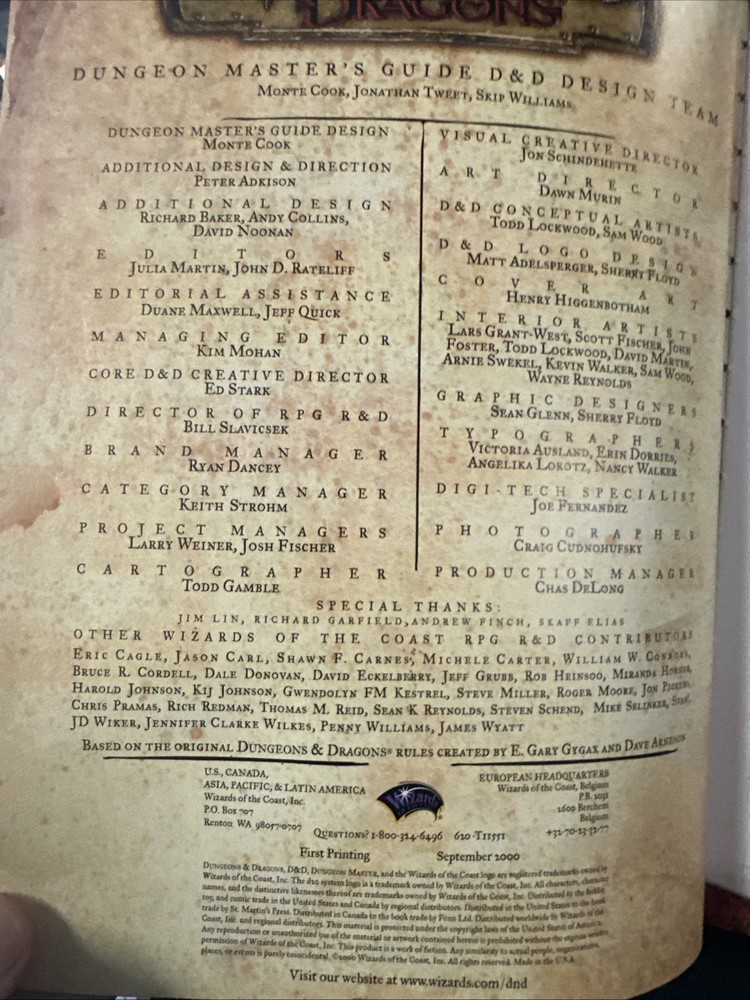 DRAGONS
DUNGEON MASTER'S GUIDE D&D DESIGN TEAM
MONTE COOK, JONATHAN TWEET, SKIP WILLIAMS
DUNGEON MASTER'S GUIDE DESIGN
MONTE COOK
ADDITIONAL DESIGN & DIRECTION
PETER ADKISON
ADDITIONAL DESIGN
RICHARD BAKER, ANDY COLLINS,
DAVID NOONAN
EDITORS
JULIA MARTIN, JOHN D. RATELIFF
EDITORIAL ASSISTANCE
DUANE MAXWELL, JEFF QUICK
MANAGING EDITOR
KIM MOHAN
CORE D&D CREATIVE DIRECTOR
ED STARK
DIRECTOR OF RPG R&D
BILL SLAVICSEK
BRAND MANAGER
RYAN DANCEY
CATEGORY MANAGER
KEITH STROHM
PROJECT MANAGERS
LARRY WEINER, JOSH FISCHER
CARTOGRAPHER
TODD GAMBLE
VISUAL CREATIVE DIRECTOR
JON SCHINDEHETTE
ART DIRECTOR
DAWN MURIN
D&D CONCEPTUAL ARTISTS
TODD LOCKWOOD, SAM WOOD
D&D LOGO DESIGN
MATT ADELSPERGER, SHERRY FLOYD
COVER ART
HENRY HIGGENBOTHAM
INTERIOR ARTISTS
LARS GRANT-WEST, SCOTT FISCHER, JOHN
FOSTER, TODD LOCKWOOD, DAVID MARTIN,
ARNIE SWEKEL, KEVIN WALKER, SAM WOOD,
WAYNE REYNOLDS
GRAPHIC DESIGNERS
SEAN GLENN, SHERRY FLOYD
TYPOGRAPHERS
VICTORIA AUSLAND, ERIN DORRIES,
ANGELIKA LOKOTZ, NANCY WALKER
DIGI-TECH SPECIALIST
JOE FERNANDEZ
PHOTOGRAPHER
CRAIG CUDNOHUFSKY
PRODUCTION MANAGER
CHAS DELONG
SPECIAL THANKS:
JIM LIN, RICHARD GARFIELD, ANDREW FINCH, SKAFF ELIAS
OTHER WIZARDS OF THE COAST RPG R&D CONTRIBUTORS
ERIC CAGLE, JASON CARL, SHAWN F. CARNES, MICHELE CARTER, WILLIAM W. CONNORS,
BRUCE R. CORDELL, DALE DONOVAN, DAVID ECKELBERRY, JEFF GRUBB, ROB HEINSOO, MIRANDA HORNER,
HAROLD JOHNSON, KIJ JOHNSON, GWENDOLYN FM KESTREL, STEVE MILLER, ROGER MOORE, JON PICKENS,
CHRIS PRAMAS, RICH REDMAN, THOMAS M. REID, SEAN K REYNOLDS, STEVEN SCHEND, MIKE SELINKER,
JD WIKER, JENNIFER CLARKE WILKES, PENNY WILLIAMS, JAMES WYATT
BASED ON THE ORIGINAL DUNGEONS & DRAGONS® RULES CREATED BY E. GARY GYGAX AND DAVE ARNESON
U.S., CANADA,
ASIA, PACIFIC, & LATIN AMERICA
Wizards of the Coast, Inc.
P.O. Box 707
Renton WA 98057-0707
Wizards
EUROPEAN HEADQUARTERS
Wizards of the Coast, Belgium
P.B. 2031
2600 Berchem
Belgium
+32-70-23-32-77
QUESTIONS? 1-800-324-6496 620-T11551
First Printing September 2000
DUNGEONS & DRAGONS, D&D, DUNGEON MASTER, and the Wizards of the Coast logo are registered trademarks owned by
Wizards of the Coast, Inc. The d20 system logo is a trademark owned by Wizards of the Coast, Inc. All characters, character
names, and the distinctive likenesses thereof are trademarks owned by Wizards of the Coast, Inc. Distributed to the hobby,
toy, and comic trade in the United States and Canada by regional distributors. Distributed in the United States to the book
trade by St. Martin's Press. Distributed in Canada to the book trade by Fenn Ltd. Distributed worldwide by Wizards of the
Coast, Inc. and regional distributors. This material is protected under the copyright laws of the United States of America.
Any reproduction or unauthorized use of the material or artwork contained herein is prohibited without the express written
permission of Wizards of the Coast, Inc. This product is a work of fiction. Any similarity to actual people, organizations,
places, or events is purely coincidental. ©2000 Wizards of the Coast, Inc. All rights reserved. Made in the U.S.A.
Visit our website at www.wizards.com/dnd